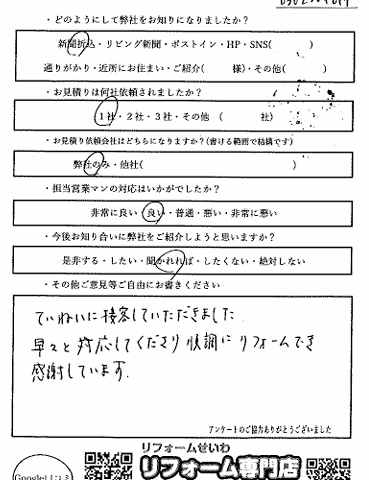 ・どのようにして弊社をお知りになりましたか?
新聞折込・リビング新聞・ポストイン・HP・SNS( )
通りがかり・近所にお住まい・ご紹介( 様)・その他( )
・お見積りは何社依頼されましたか?
1社・2社・3社・その他 ( 社)
・お見積り依頼会社はどちらになりますか?(書ける範囲で結構です)
弊社のみ・他社( )
・担当営業マンの対応はいかがでしたか?
非常に良い・良い・普通・悪い・非常に悪い
・今後お知り合いに弊社をご紹介しようと思いますか?
是非する・したい・聞かれれば・したくない・絶対しない
・その他ご意見等ご自由にお書きください
ていねいに接客していただきました
早々と対応してくださり順調にリフォームでき
感謝しています.
アンケートのご協力ありがとうございました
リフォームせいわ
リフォーム専門店
Google口コミ